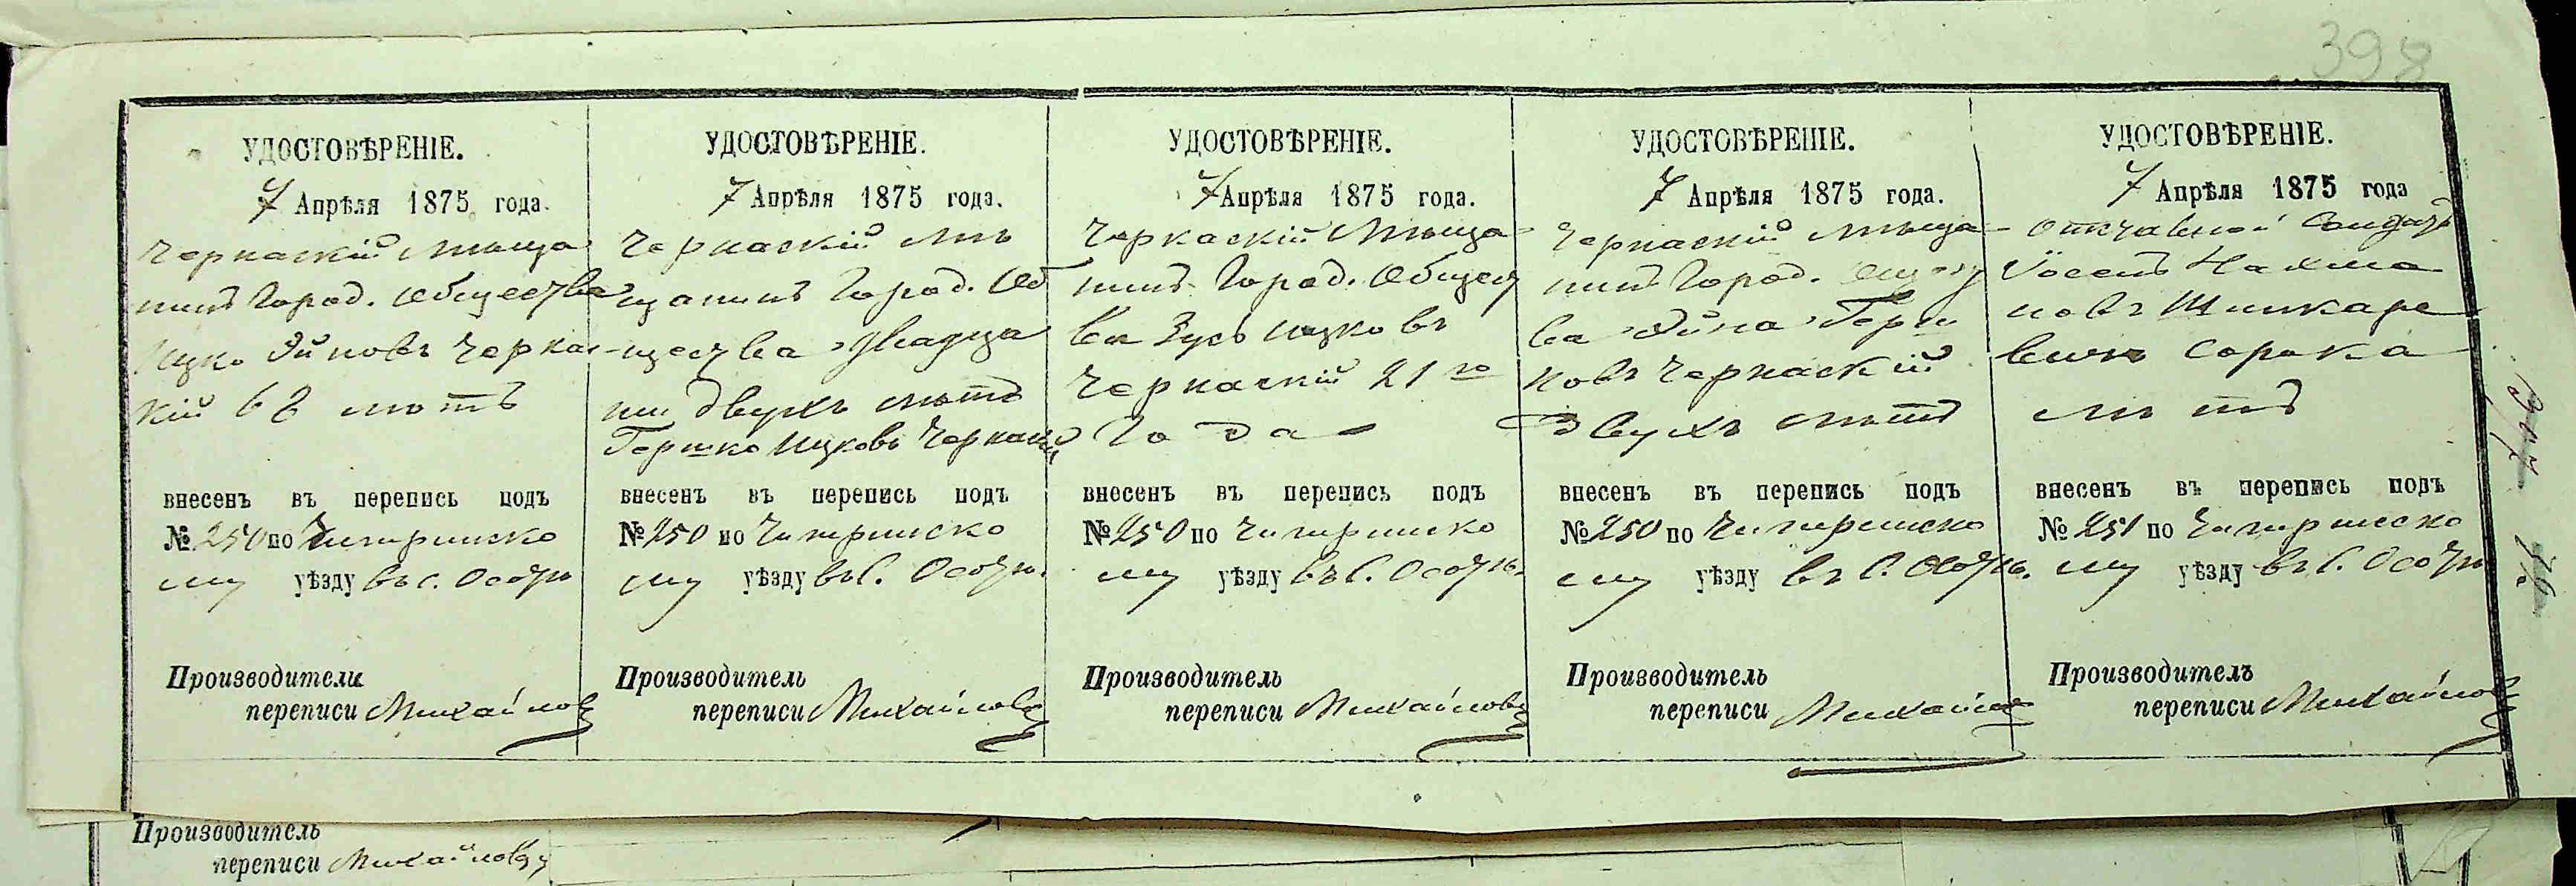 398
УДОСТОВѢРЕНІЕ.
7 Апрѣля 1875 года.
Черкаскій Мѣща
нинъ Город. Общества
Ицко Эйновъ Черка-
кій 62 лѣтъ
внесенъ въ перепись подъ
№ 250 по Чигиринско
му уѣзду въ с. Осотѣ
Производитель
переписи Михайловъ
УДОСТОВѢРЕНІЕ.
7 Апрѣля 1875 года.
Черкаскій Мѣ
щанинъ Город. Об
щества двадца
ти двухъ лѣтъ
Гершко Ицковъ Черкаскій
внесенъ въ перепись подъ
№ 250 по Чигиринско
му уѣзду въ С. Осотѣ.
Производитель
переписи Михайловъ
УДОСТОВѢРЕНІЕ.
7 Апрѣля 1875 года.
Черкаскій Мѣща-
нинъ Город. Общест
ва Зусь Ицковъ
Черкаскій 21 го
Года
внесенъ въ перепись подъ
№ 250 по Чигиринско
му уѣзду въ С. Осотѣ.
Производитель
переписи Михайловъ
УДОСТОВѢРЕНІЕ.
7 Апрѣля 1875 года.
Черкаскій Мѣща-
нинъ Город.
ва Эйна Герш
ковъ Черкаскій
двухъ лѣтъ
внесенъ въ перепись подъ
№ 250 по Чигиринско
му уѣзду въ С. Осотѣ.
Производитель
переписи Михайловъ
УДОСТОВѢРЕНІЕ.
7 Апрѣля 1875 года
Отставной Солдатъ
Іосепъ Нахма
новъ Шинкаре
вичъ сорока
лѣтъ
внесенъ въ перепись подъ
№ 251 по Чигиринско
му уѣзду въ С. Осотѣ
Производитель
переписи Михайловъ
Производитель
переписи Михайловъ